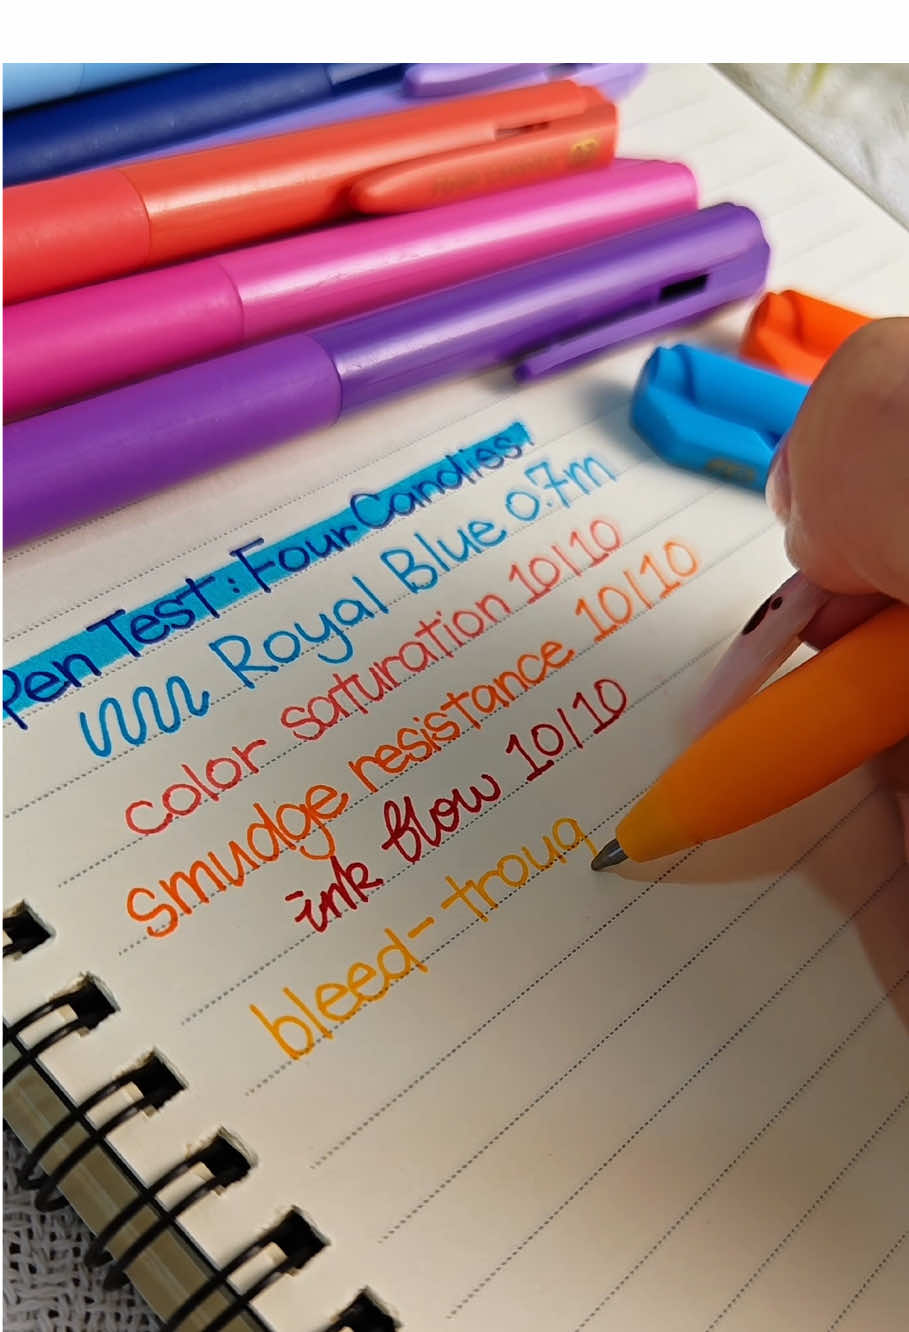 Pen Test: Four Candies
Royal Blue 0.7m
color saturation 10/10
smudge resistance 10/10
ink flow 10/10
bleed-troug